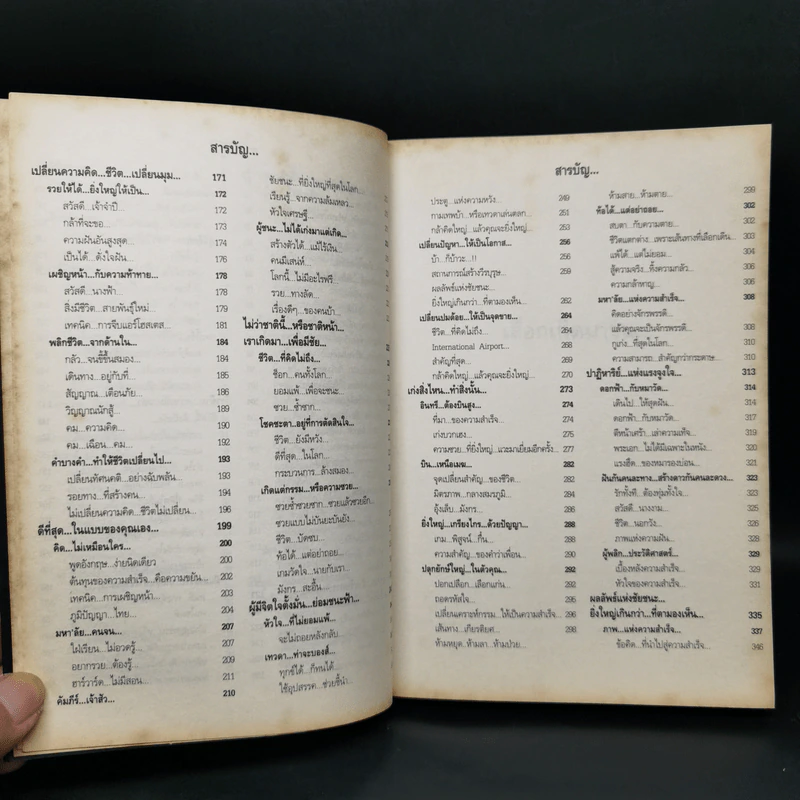 สารบัญ...
เปลี่ยนความคิด...ชีวิต...เปลี่ยนมุม... 171
รวยให้ได้...ยิ่งใหญ่ให้เป็น... 172
สวัสดี...เจ้าจำปี 172
กล้าที่จะขอ... 173
ความฝันอันสูงสุด... 174
เป็นได้...ดั่งใจฝัน... 176
เผชิญหน้า...กับความท้าทาย... 178
สวัสดี...นางฟ้า... 178
สิ่งมีชีวิต...สายพันธุ์ใหม่... 179
เทคนิค...การจีบแอร์โฮสเตส... 181
พลิกชีวิต...จากด้านใน... 184
กลัว...จนขี้ขึ้นสมอง... 184
เดินทาง...อยู่กับที่... 185
สัญญาณ...เตือนภัย... 186
วิญญาณนักสู้... 187
คม...ความคิด... 190
คม...เฉือน...คม... 190
คำบางคำ...ทำให้ชีวิตเปลี่ยนไป... 193
เปลี่ยนทัศนคติ...อย่างฉับพลัน... 193
รอยทาง...ที่สร้างคน... 194
ไม่เปลี่ยนความคิด...ชีวิตไม่เปลี่ยน... 195
ดีที่สุด...ในแบบของคุณเอง... 199
คิด...ไม่เหมือนใคร... 200
พูดอังกฤษ...ง่ายนิดเดียว 200
ต้นทุนของความสำเร็จ...คือความขยัน... 202
เทคนิค...การเผชิญหน้า... 203
ภูมิปัญญา...ไทย... 204
มหา'ลัย...คนจน... 207
ใฝ่เรียน...ไม่อวดรู้... 207
อยากรวย...ต้องรู้... 209
ฮาร์วาร์ด...ไม่มีสอน... 211
คัมภีร์...เจ้าสัว... 210
ชัยชนะ...ที่ยิ่งใหญ่ที่สุดในโลก...
เรียนรู้...จากความล้มเหลว...
หัวใจเศรษฐี...
ผู้ชนะ...ไม่ได้เก่งมาแต่เกิด...
สร้างตัวได้...แม้ไร้เงิน...
คนมีเสน่ห์...
โลกนี้...ไม่มีอะไรฟรี
รวย...ทางลัด...
เรื่องดีๆ...ของคนบ้า...
ไม่ว่าชาตินี้...หรือชาติหน้า...
เราเกิดมา...เพื่อมีชัย...
ชีวิต...ที่คิดไม่ถึง...
ช็อก...คนทั้งโลก...
ยอมแพ้...เพื่อจะชนะ...
ซวย...ซ้ำซาก...
โชคชะตา...อยู่ที่การตัดสินใจ...
ชีวิต...ยังมีหวัง...
ดีที่สุด...ในโลก...
กระบวนการ...ล้างสมอง...
เกิดแต่กรรม...หรือความซวย...
ซวยซ้ำซวยซาก...ซวยแล้วซวยอีก...
ซวยแบบไม่บันยะบันยัง...
ชีวิต...บัดซบ...
ท้อได้...แต่อย่าถอย...
เกมวัดใจ...นายกับเรา...
มังกร...สะอื้น...
ผู้มีจิตใจตั้งมั่น...ย่อมชนะฟ้า...
หัวใจ...ที่ไม่ยอมแพ้...
จะไม่ถอยหลังกลับ...
เทวดา...ท่าจะบองส์...
ทุกข์ได้...ก็ทนได้...
ใช้อุปสรรค...ช่วยชี้นำ...
สารบัญ...
ประตู...แห่งความหวัง... 249
กามเทพบ้า...หรือเทวดาเล่นตลก... 251
กล้าคิดใหญ่...แล้วคุณจะยิ่งใหญ่... 253
เปลี่ยนปัญหา...ให้เป็นโอกาส... 256
บ้า...ก็บ้าวะ...!!
สถานการณ์สร้างวีรบุรุษ...
ผลลัพธ์แห่งชัยชนะ...
ยิ่งใหญ่เกินกว่า...ที่ตามองเห็น... 262
เปลี่ยนปมด้อย...ให้เป็นจุดขาย... 264
ชีวิต...ที่คิดไม่ถึง...
International Airport...
สำคัญที่สุด...
กล้าคิดใหญ่...แล้วคุณจะยิ่งใหญ่... 270
เก่งสิ่งไหน...ทำสิ่งนั้น... 273
อินทรี...ต้องบินสูง... 274
ที่มา...ของความสำเร็จ... 274
เก่งบวกเฮง...
ความซวย...ที่ยิ่งใหญ่...แวะมาเยี่ยมอีกครั้ง... 277
บิน...เหนือเมฆ... 282
จุดเปลี่ยนสำคัญ...ของชีวิต... 282
มิตรภาพ...กลางสมรภูมิ...
อุ้งเล็บ...มังกร...
ยิ่งใหญ่...เกรียงไกร...ด้วยปัญญา... 288
เกม...พิสูจน์...กึ๋น... 288
ความสำคัญ...ของคำว่าเพื่อน... 290
ปลุกยักษ์ใหญ่...ในตัวคุณ... 292
ปอกเปลือก...เลือกแก่น... 292
ถอดรหัสใจ...
เปลี่ยนเคราะห์กรรม...ให้เป็นความสำเร็จ... 296
เส้นทาง...เกียรติยศ... 298
ห้ามหยุด...ห้ามลา...ห้ามป่วย...
ห้ามสาย...ห้ามตาย... 299
ท้อได้...แต่อย่าถอย... 302
สบตา...กับความตาย... 302
ชีวิตแตกต่าง...เพราะเส้นทางที่เลือกเดิน... 303
แพ้ได้...แต่ไม่ยอม...
สู้ความจริง...ทิ้งความกลัว...
ความกล้าหาญ...
มหา'ลัย...แห่งความสำเร็จ... 308
คิดอย่างจักรพรรดิ...
แล้วคุณจะเป็นจักรพรรดิ...
กูเก่ง...ที่สุดในโลก...
ความสามารถ...สำคัญกว่ากระดาษ...
ปาฏิหาริย์...แห่งแรงจูงใจ... 313
ดอกฟ้า...กับหมาวัด... 314
เดินไป...ให้สุดฝัน... 314
ดอกฟ้า...กับหมาวัด... 315
ตีหน้าเศร้า...เล่าความเท็จ... 317
พระเอก...ไม่ได้มีเฉพาะในหนัง... 320
แรงฮึด...ของหมาจรบ่อน... 321
ฝันกันคนละทาง...สร้างดาวกันคนละดวง... 323
รักทั้งที...ต้องทุ่มทั้งใจ... 323
สวัสดี...นางงาม... 324
ชีวิต...นอกวัง...
ภาพแห่งความฝัน...
ผู้พลิก...ประวัติศาสตร์... 329
เบื้องหลังความสำเร็จ... 329
หัวใจของความสำเร็จ... 331
ผลลัพธ์แห่งชัยชนะ...
ยิ่งใหญ่เกินกว่า...ที่ตามองเห็น... 335
ภาพ...แห่งความสำเร็จ... 337
ข้อคิด...ที่นำไปสู่ความสำเร็จ... 346